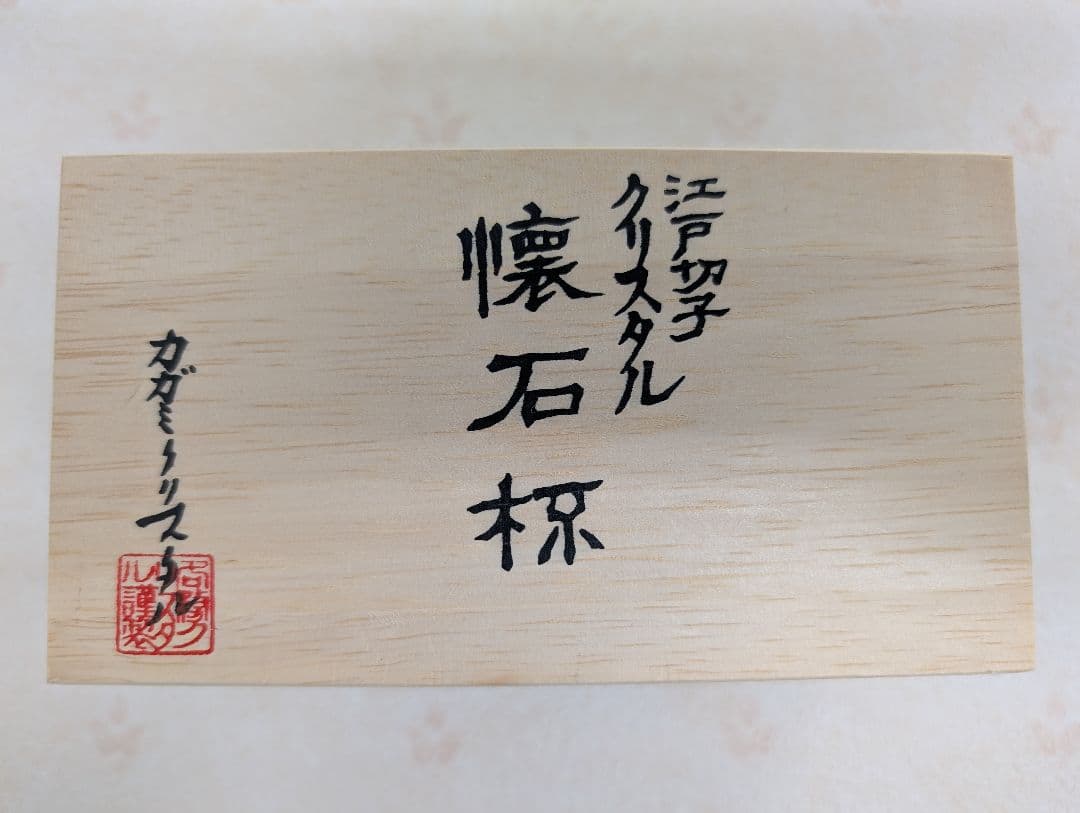 江戸切子
クリスタル
懐石杯
カガミクリスタル